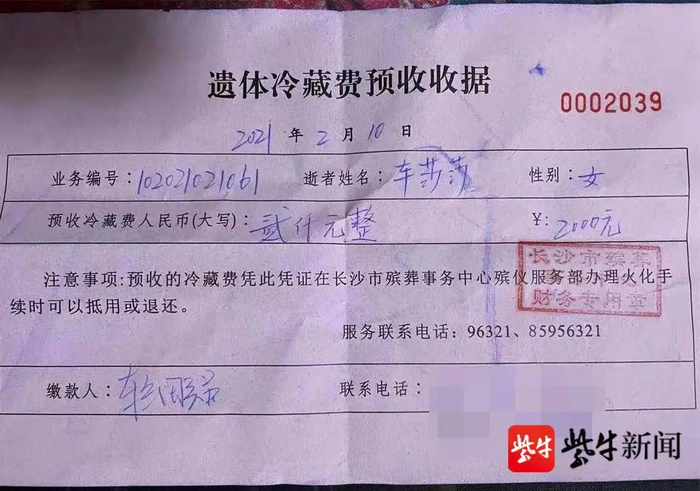 遗体冷藏费预收收据
0002039
2021 年 2 月 10 日
业务编号：102021021061 逝者姓名：车莎莎 性别：女
预收冷藏费人民币(大写)：贰仟元整 ¥: 2000元
注意事项:预收的冷藏费凭此凭证在长沙市殡葬事务中心殡仪服务部办理火化手
续时可以抵用或退还。
长沙市殡葬
财务专用章
服务联系电话：96321、85956321
缴款人： 联系电话：
紫牛 紫牛新闻